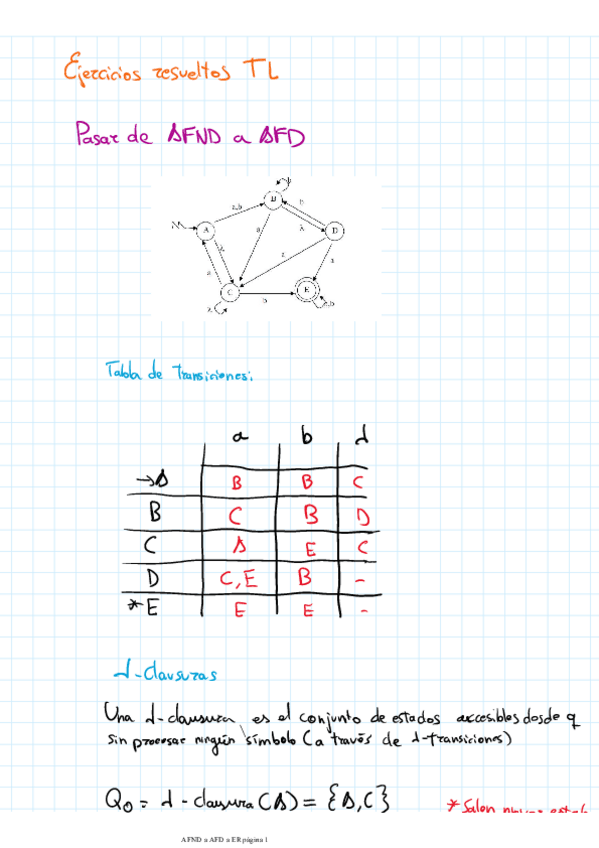 Ejercicios resueltos TL
Pasar de AFND a AFD
a,b
B
b
A
λ
D
a
λ
a
a
a
C
E
λ
b
a,b
Tabla de transiciones:
a b λ
→A B B C
B C B D
C A E C
D C,E B -
*E E E -
λ-clausuras
Una λ-clausura es el conjunto de estados accesibles desde q
sin procesar ningún símbolo (a través de λ-transiciones)
Q0 = λ-clausura(A) = {A,C}
*Salen
AFND a AFD a ER página 1